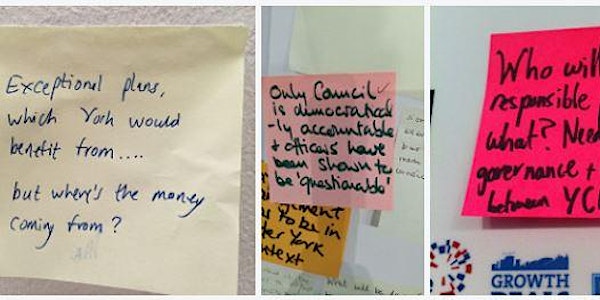 Exceptional plans,
which York would
benefit from....
but where's the money
coming from?
Only Council
is democratical
-ly accountable
+ officers have
been shown to
be 'questionable'
to be in
York
Who will
responsible
what? Need
governance +
between YC
GROWTH